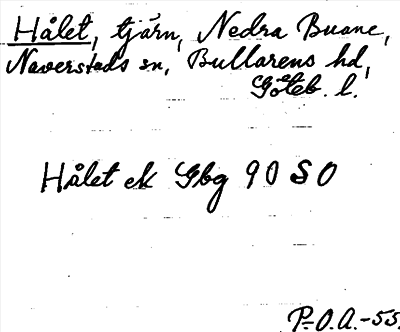 Hålet, tjärn, Nedra Buane,
Naverstads sn, Bullarens hd,
Göteb. l.
Hålet ek Gbg 90 SO
P-O.A.-55.